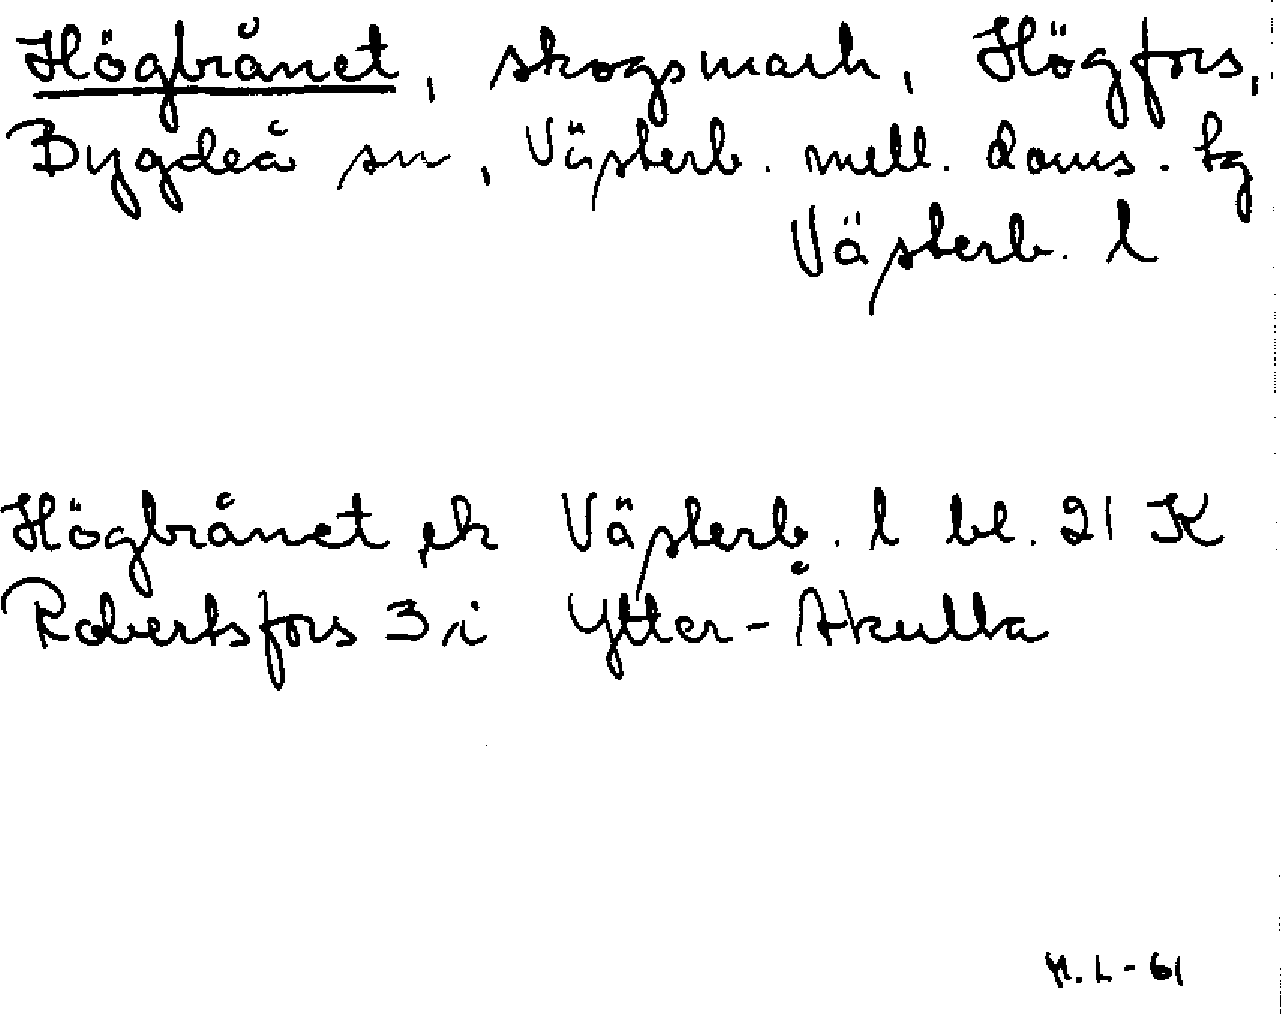 Högbrånet, skogsmark, Högfors,
Bygdeå sn, Västerb. mell. doms. tg
Västerb. l
Högbrånet ek Västerb. l bl. 21 K
Robertsfors 3 i Ytter-Åkulla
M.L-61